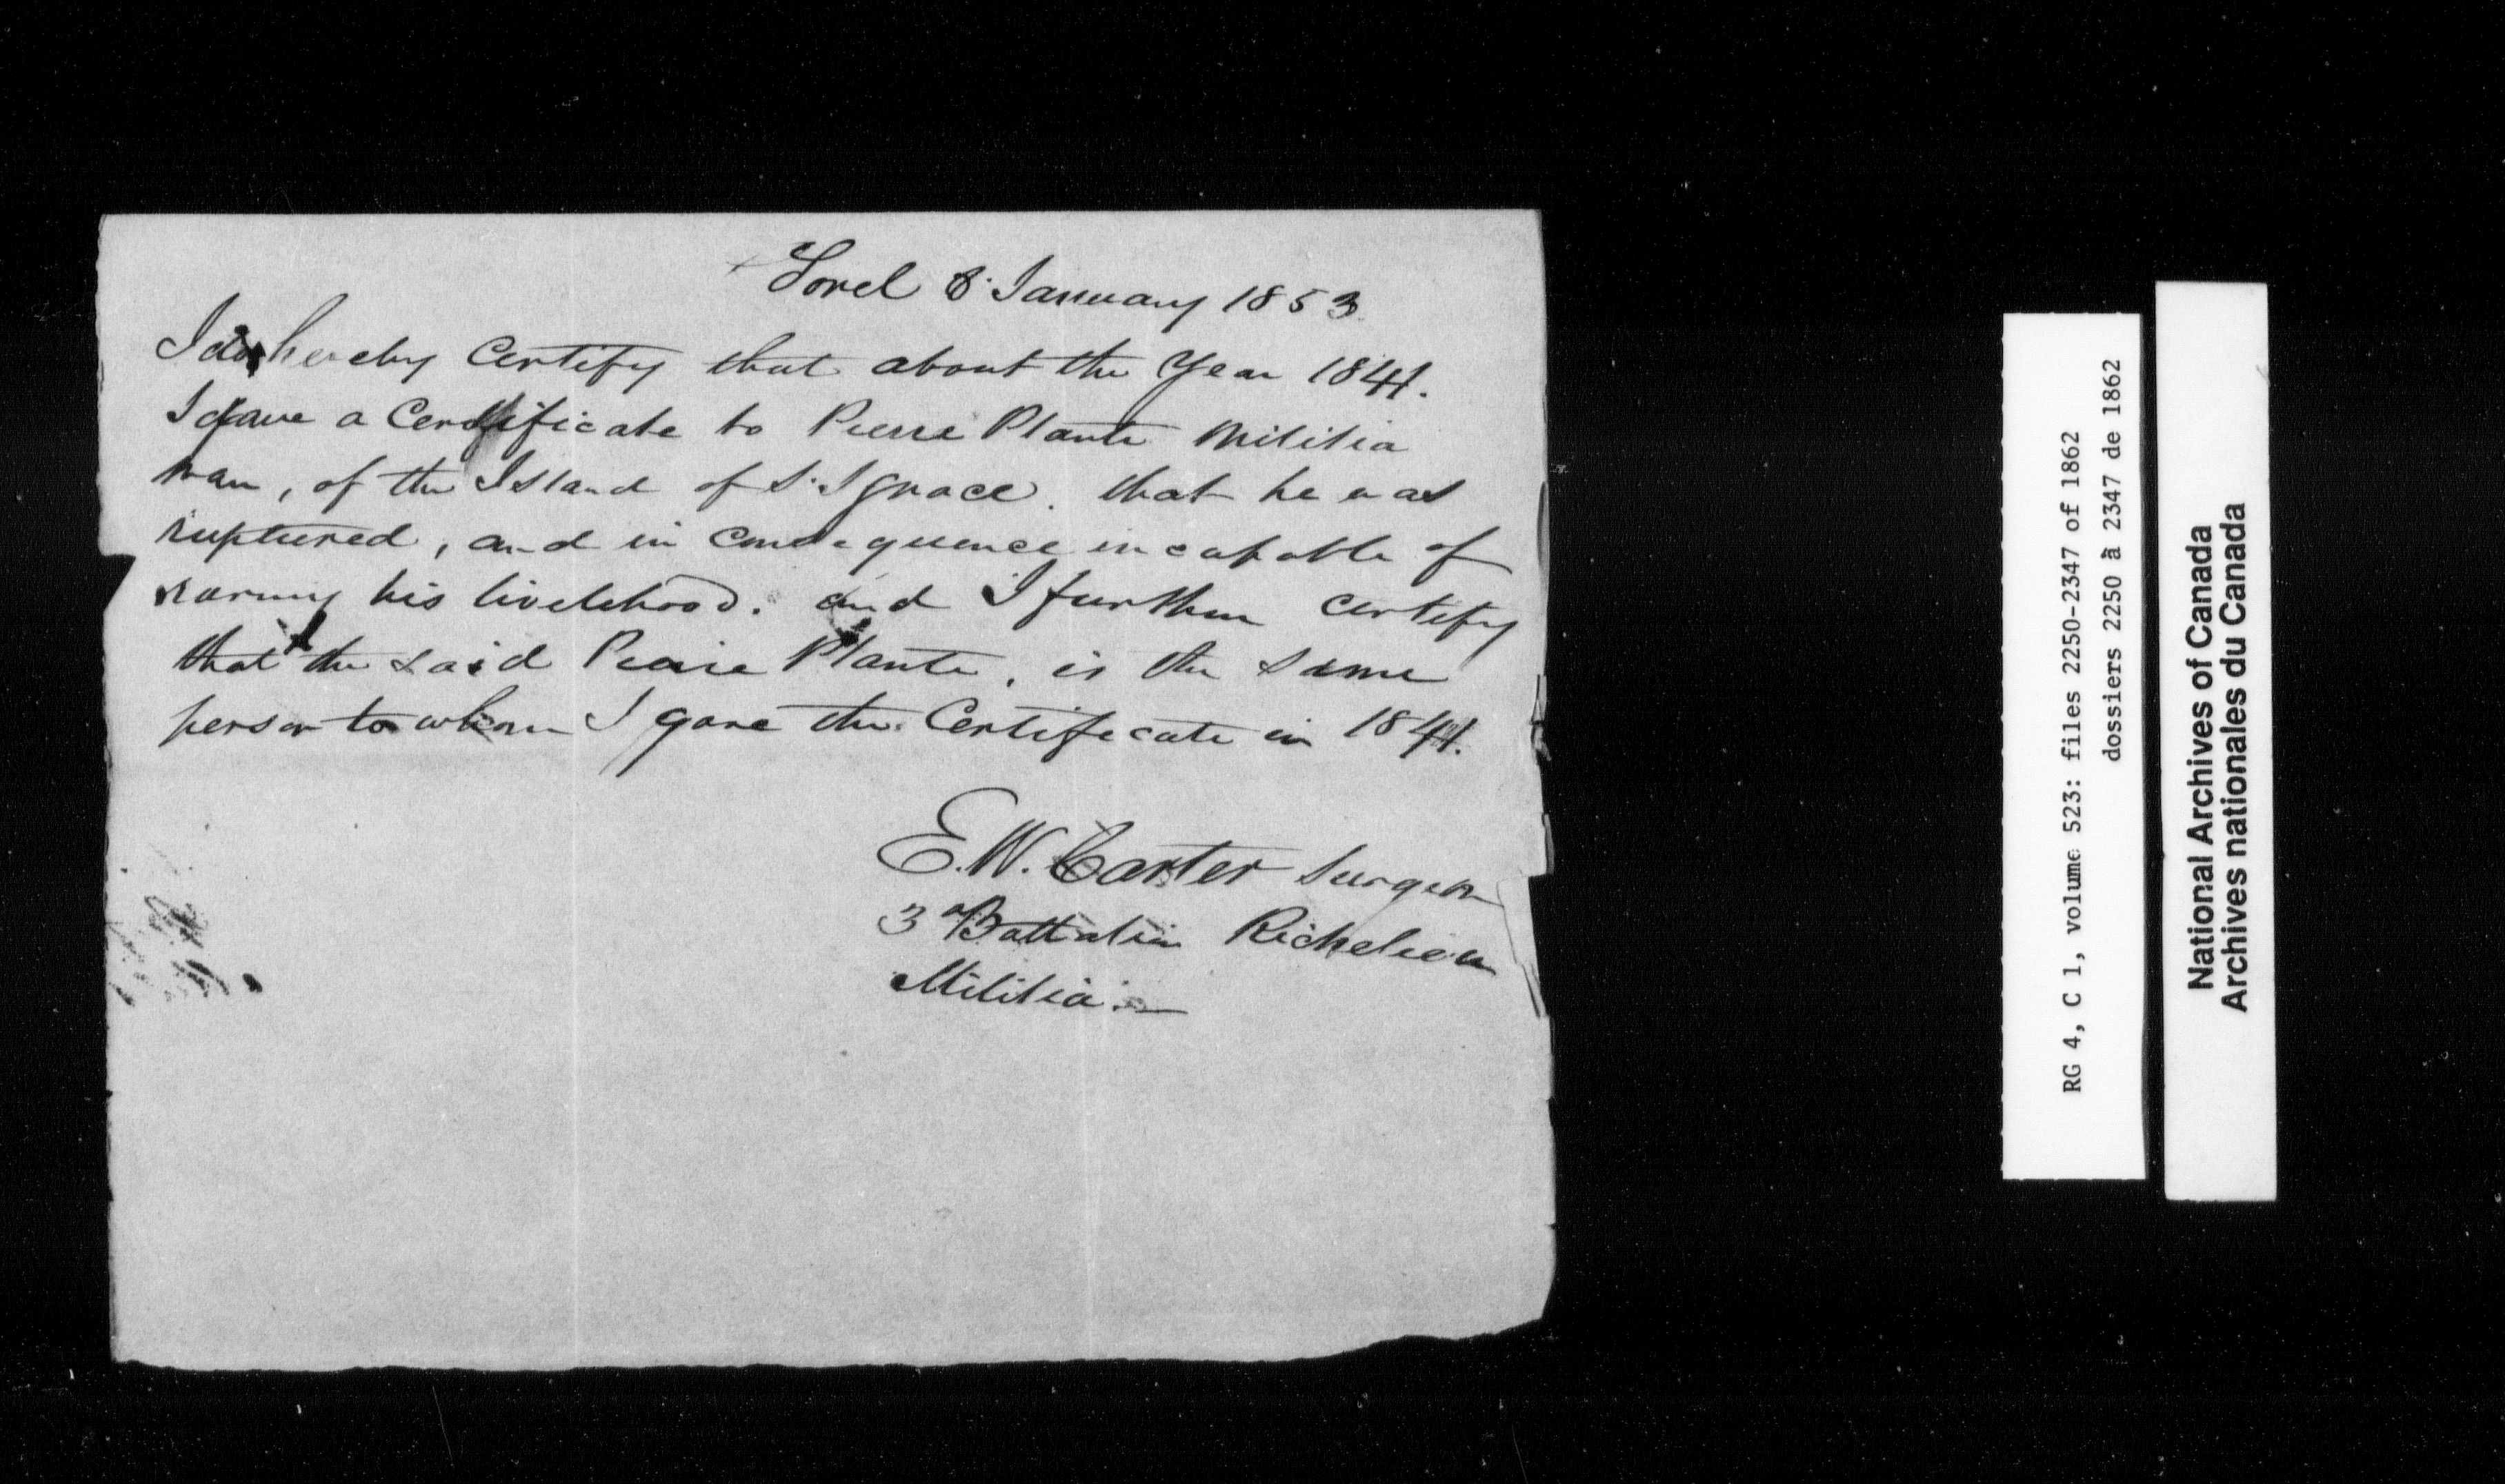 Sorel 8. January 1853
I do hereby Certify that about the Year 1841.
I gave a Certificate to Pierre Plante Militia
man, of the Island of S. Ignace. that he was
ruptured, and in consequence incapable of
earning his livelehood. and I further certify
that the said Pierre Plante, is the same
person to whom I gave the Certificate in 1841.
E.W. Carter Surgeon
3 Battalion Richelieu
Militia
RG 4, C 1, volume 523: files 2250-2347 of 1862
dossiers 2250 à 2347 de 1862
National Archives of Canada
Archives nationales du Canada